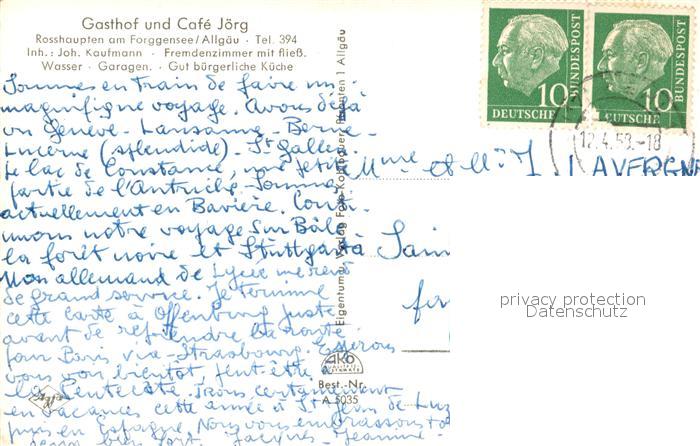 Gasthof und Café Jörg
Rosshaupten am Forggensee/Allgäu · Tel. 394
Inh.: Joh. Kaufmann · Fremdenzimmer mit fließ.
Wasser · Garagen. · Gut bürgerliche Küche
Sommes en train de faire un
magnifique voyage. Avons déjà
vu Genève - Lausanne - Berne -
Lucerne (splendide) - St Gallen.
le lac de Constance, une petite
partie de l'Autriche. Sommes
actuellement en Bavière. Conti-
nuons notre voyage sur Bâle
la forêt noire et Stuttgart
Mon allemand de Lycée me rend
de grand service. Je termine
cette carte à Offenburg juste
avant de reprendre la route
pour Paris via Strasbourg. Espérons
vous voir bientôt peut être à
la Pentecôte. Irons certainement
en vacances cette année à St Jean de Luz
puis en Espagne. Nous vous embrassons
bien fort. Jacques - Jeanne -
Mme et Mr J. LAVERGNE
Sain
Eigentum u. Verlag Foto-Kolb, 1 Allgäu
10
DEUTSCHE
BUNDESPOST
10
DEUTSCHE
BUNDESPOST
12.4.58.-18
privacy protection
Datenschutz
ako
Best.-Nr.
A 5035
Agfa